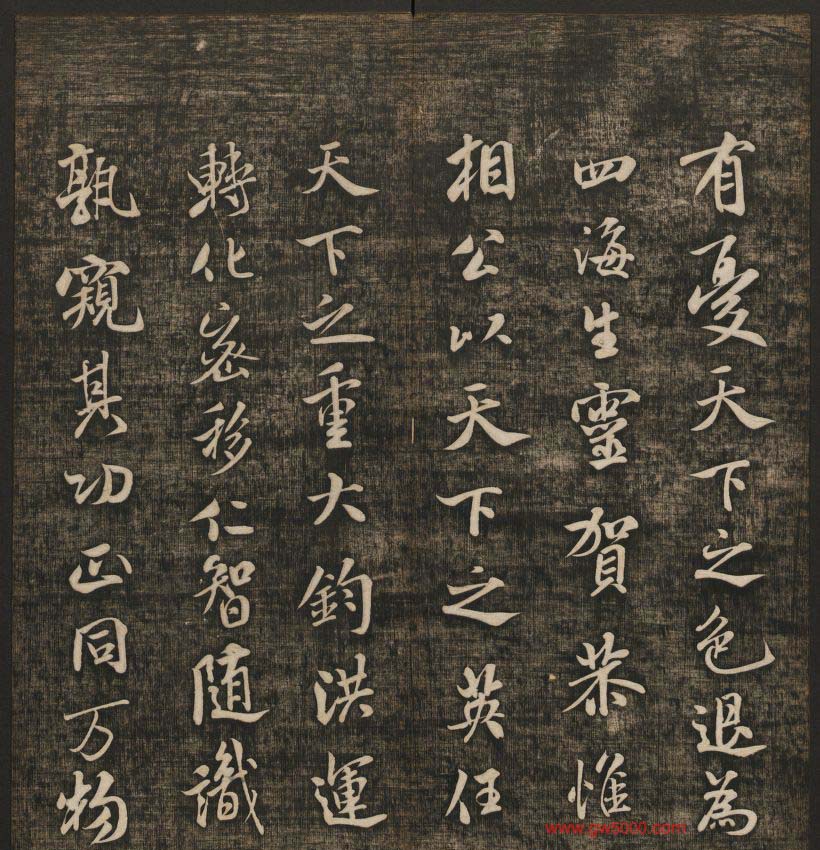 有憂天下之色退為
四海生靈賀恭惟
相公以天下之英任
天下之重大鈞洪運
轉化密移仁智隨識
孰窺其功正同万物
www.gw5000.com